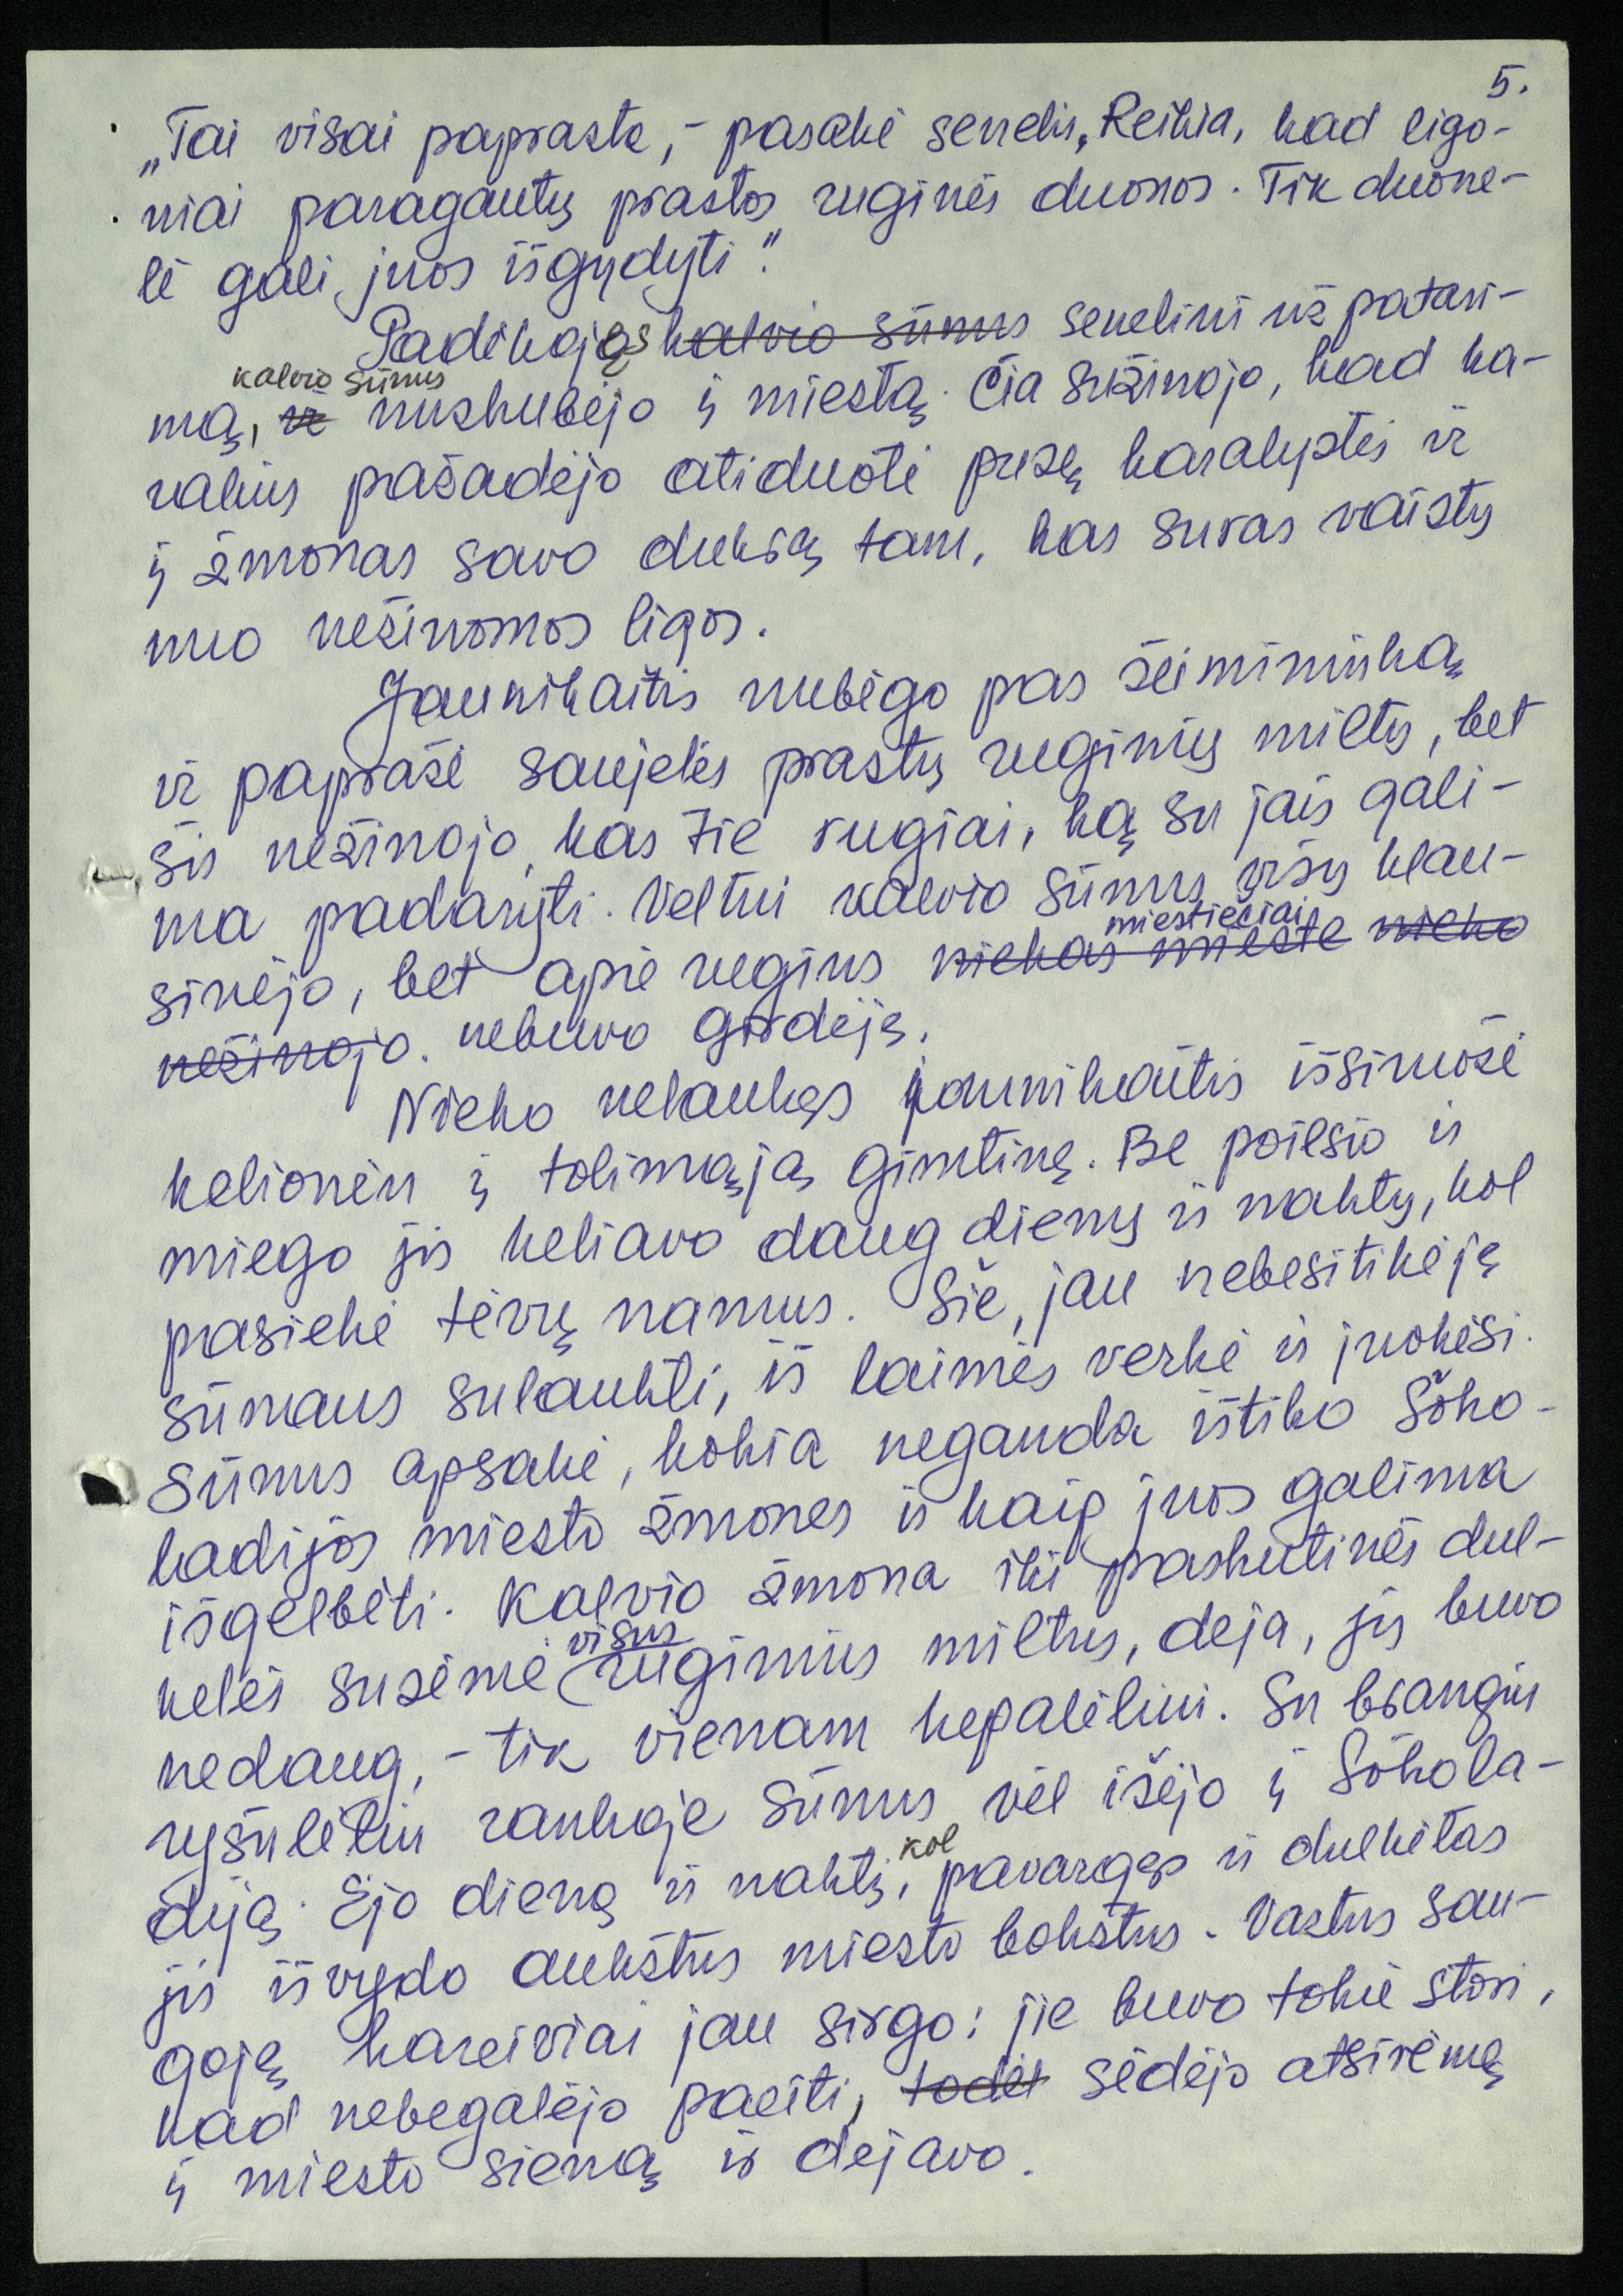 5.
„Tai visai paprasta, - pasakė senelis, „Reikia, kad ligo-
niai paragautų prastos ruginės duonos. Tik duone-
lė gali juos išgydyti."
Padėkojęs kalvio sūnus seneliui už patari-
kalvio sūnus
mą, ir nuskubėjo į miestą. Čia sužinojo, kad ka-
ralius pažadėjo atiduoti pusę karalystės ir
į žmonas savo dukrą tam, kas suras vaistų
nuo nežinomos ligos.
Jaunikaitis nubėgo pas šeimininką
ir paprašė saujelės prastų ruginių miltų, bet
šis nežinojo, kas tie rugiai, ką su jais gali-
ma padaryti. Veltui kalvio sūnus visų klau-
miestiečiai
sinėjo, bet apie rugius niekas mieste nieko
nežinojo. nebuvo girdėję.
Nieko nelaukęs jaunikaitis išsiruošė
kelionėn į tolimąją gimtinę. Be poilsio ir
miego jis keliavo daug dienų ir naktų, kol
pasiekė tėvų namus. Šie, jau nebesitikėję
sūnaus sulaukti, iš laimės verkė ir juokėsi.
Sūnus apsakė, kokia neganda ištiko Šoko-
ladijos miesto žmones ir kaip juos galima
išgelbėti. Kalvio žmona iki paskutinės dul-
visus
kelės susėmė ruginius miltus, deja, jų buvo
nedaug, - tik vienam kepalėliui. Su brangiu
ryšulėliu rankoje sūnus vėl išėjo į Šokola-
diją. Ėjo dieną ir naktį, kol pavargęs ir dulkėtas
jis išvydo aukštus miesto bokštus. Vartus sau-
goję kareiviai jau sirgo: jie buvo tokie stori,
kad nebegalėjo paeiti, todėl sėdėjo atsirėmę
į miesto sieną ir dejavo.